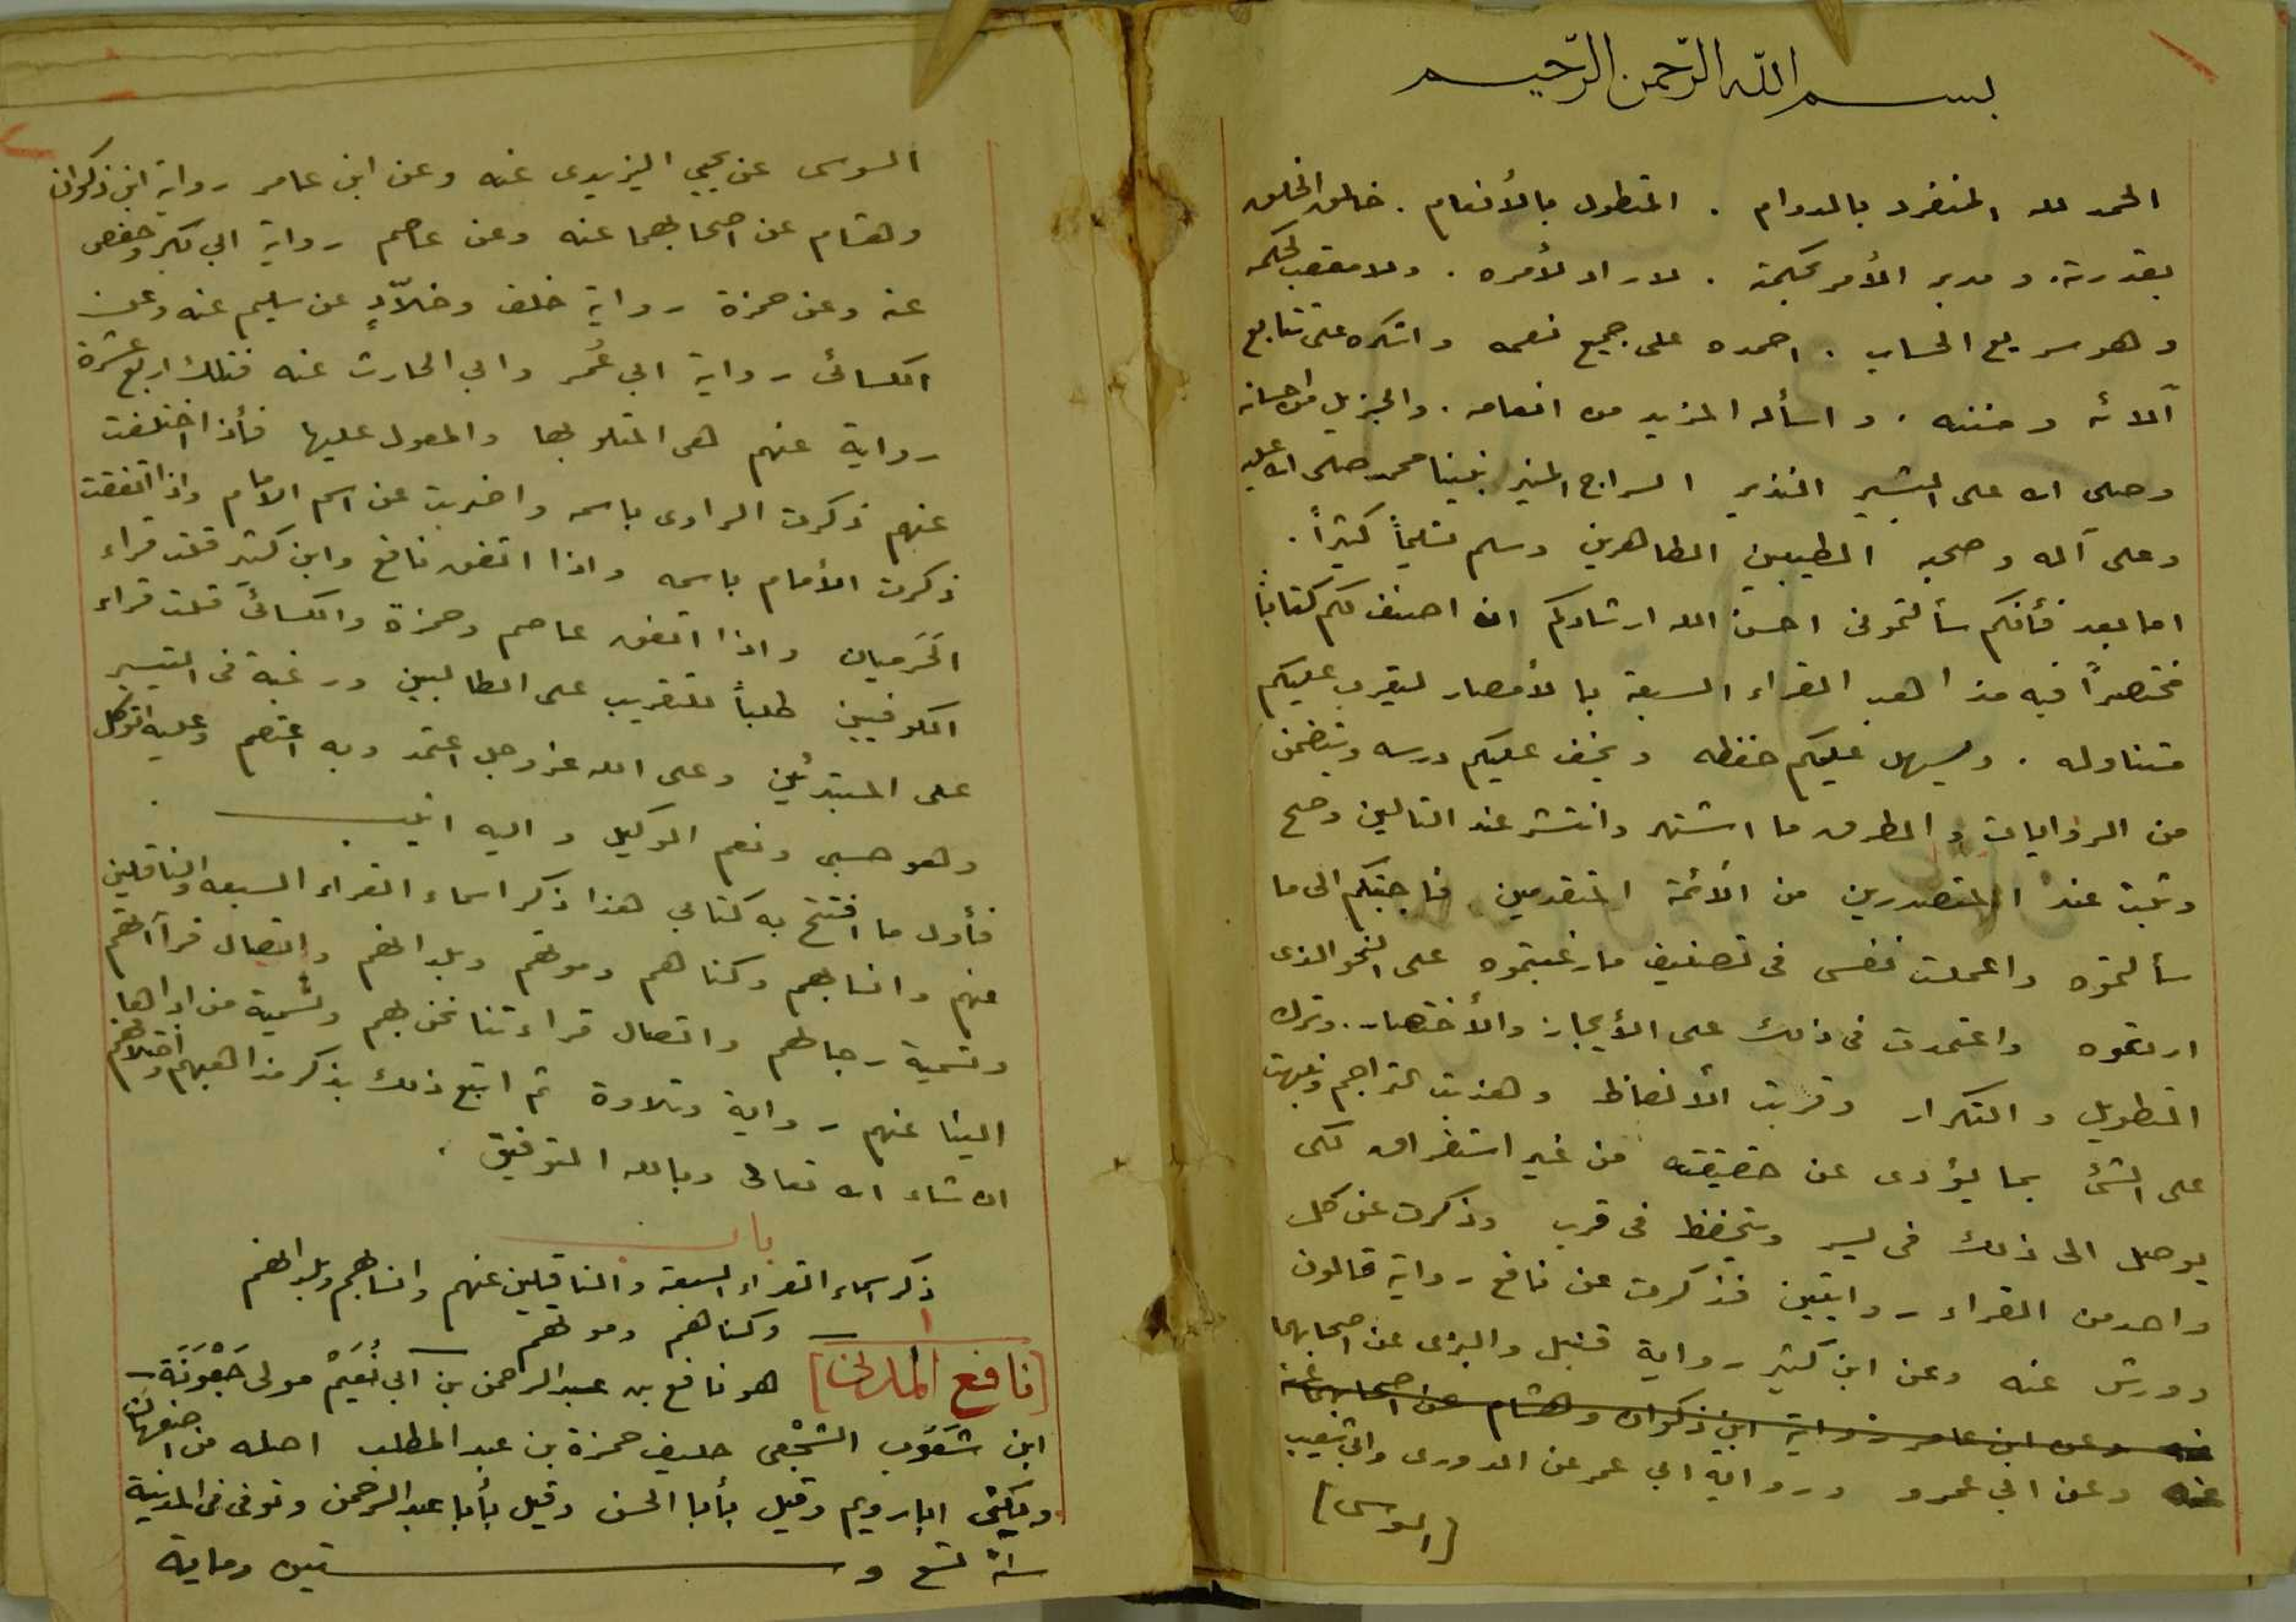 بسم الله الرّحمن الرّحيم
الحمد لله المنفرد بالدوام . المتطول بالأنعام . خالق الخلق
بقدرته . و مدبر الأمر بحكمته . لا راد لأمره . ولا معقب لحكمه
وهو سريع الحساب . احمده على جميع نعمه واشكره على تتابع
آلائه ومننه . و اسأله المزيد من انعامه . والجزيل من احسانه
وصلى الله على البشير النذير السراج المنير نبينا محمد صلى الله عليه
وعلى آله وصحبه الطيبين الطاهرين وسلم تسليماً كثيراً .
اما بعد فأنكم سألتمونى احسن الله ارشادكم ان اصنف لكم كتاباً
مختصراً فيه مذاهب القراء السبعة بالأمصار ليقرب عليكم
متناوله . ويسهل عليكم حفظه ويخف عليكم درسه ويتضمن
من الروايات و الطرق ما اشتهر وانتشر عند التالين وصح
وثبت عند المتصدرين من الأئمة المتقدمين فاجبتكم الى ما
سألتموه واعملت نفسى فى تصنيف ما رغبتموه على النحو الذى
اردتموه واعتمدت فى ذلك على الأيجاز والأختصار . وترك
التطويل و التكرار وقربت الألفاظ وهذبت التراجم ونبهت
على الشئ بما يؤدى عن حقيقته من غير استغراق لكى
يوصل الى ذلك فى يسر ويتحفظ فى قرب وذكرت عن كل
واحد من القراء روايتين فذكرت عن نافع رواية قالون
وورش عنه وعن ابن كثير رواية قنبل والبزى عن اصحابهما
عنه وعن ابن عامر رواية ابن ذكوان وهشام عن اصحابهما عنه
عنه وعن ابي عمرو ورواية ابي عمر عن الدورى وابي شعيب
[السوسى]
السوسى عن يحيى اليزيدى عنه وعن ابن عامر رواية ابن ذكوان
وهشام عن اصحابهما عنه وعن عاصم رواية ابي بكر وحفص
عنه وعن حمزة رواية خلف وخلاّدٍ عن سليم عنه وعن
الكسائى رواية ابي عُمر وابي الحارث عنه فتلك اربع عشرة
رواية عنهم هى المتلو بها والمعول عليها فأذا اختلفت
عنهم ذكرت الراوى باسمه واضربت عن اسم الامام واذا اتفقت
ذكرت الأمام باسمه واذا اتفق نافع وابن كثير قلت قراء
الحَرميان واذا اتفق عاصم وحمزة والكسائى قلت قراء
الكوفيين طلباً للتقريب على الطالبين ورغبة فى التيسير
على المبتدئين وعلى الله عز وجل اعتمد وبه اعتصم وعليه اتوكل
وهو حسبى ونعم الوكيل و اليه انيب .
فأول ما افتتح به كتابى هذا ذكر اسماء القراء السبعه والناقلين
عنهم وانسابهم وكناهم وموتهم وبلدانهم واتصال قرآاتهم
وتسمية رجالهم واتصال قراءتنا نحن بهم وتسمية من اداها
الينا عنهم رواية وتلاوة ثم اتبع ذلك بذكر مذاهبهم واختلافهم
ان شاء الله تعالى وبالله التوفيق .
باب
ذكر اسماء القراء السبعة والناقلين عنهم وانسابهم وبلدانهم
وكناهم وموتهم
١
[نافع المدنى] هو نافع بن عبد الرحمن بن ابى نُعَيْم مولى جَعْوَنَة
ابن شَعُوب الشجْعى حليف حمزة بن عبد المطلب اصله من اصفهان
ويكنى ابا رويم وقيل بأبا الحسن وقيل بأبا عبد الرحمن وتوفى فى المدينة
سنة تسع وستين وماية